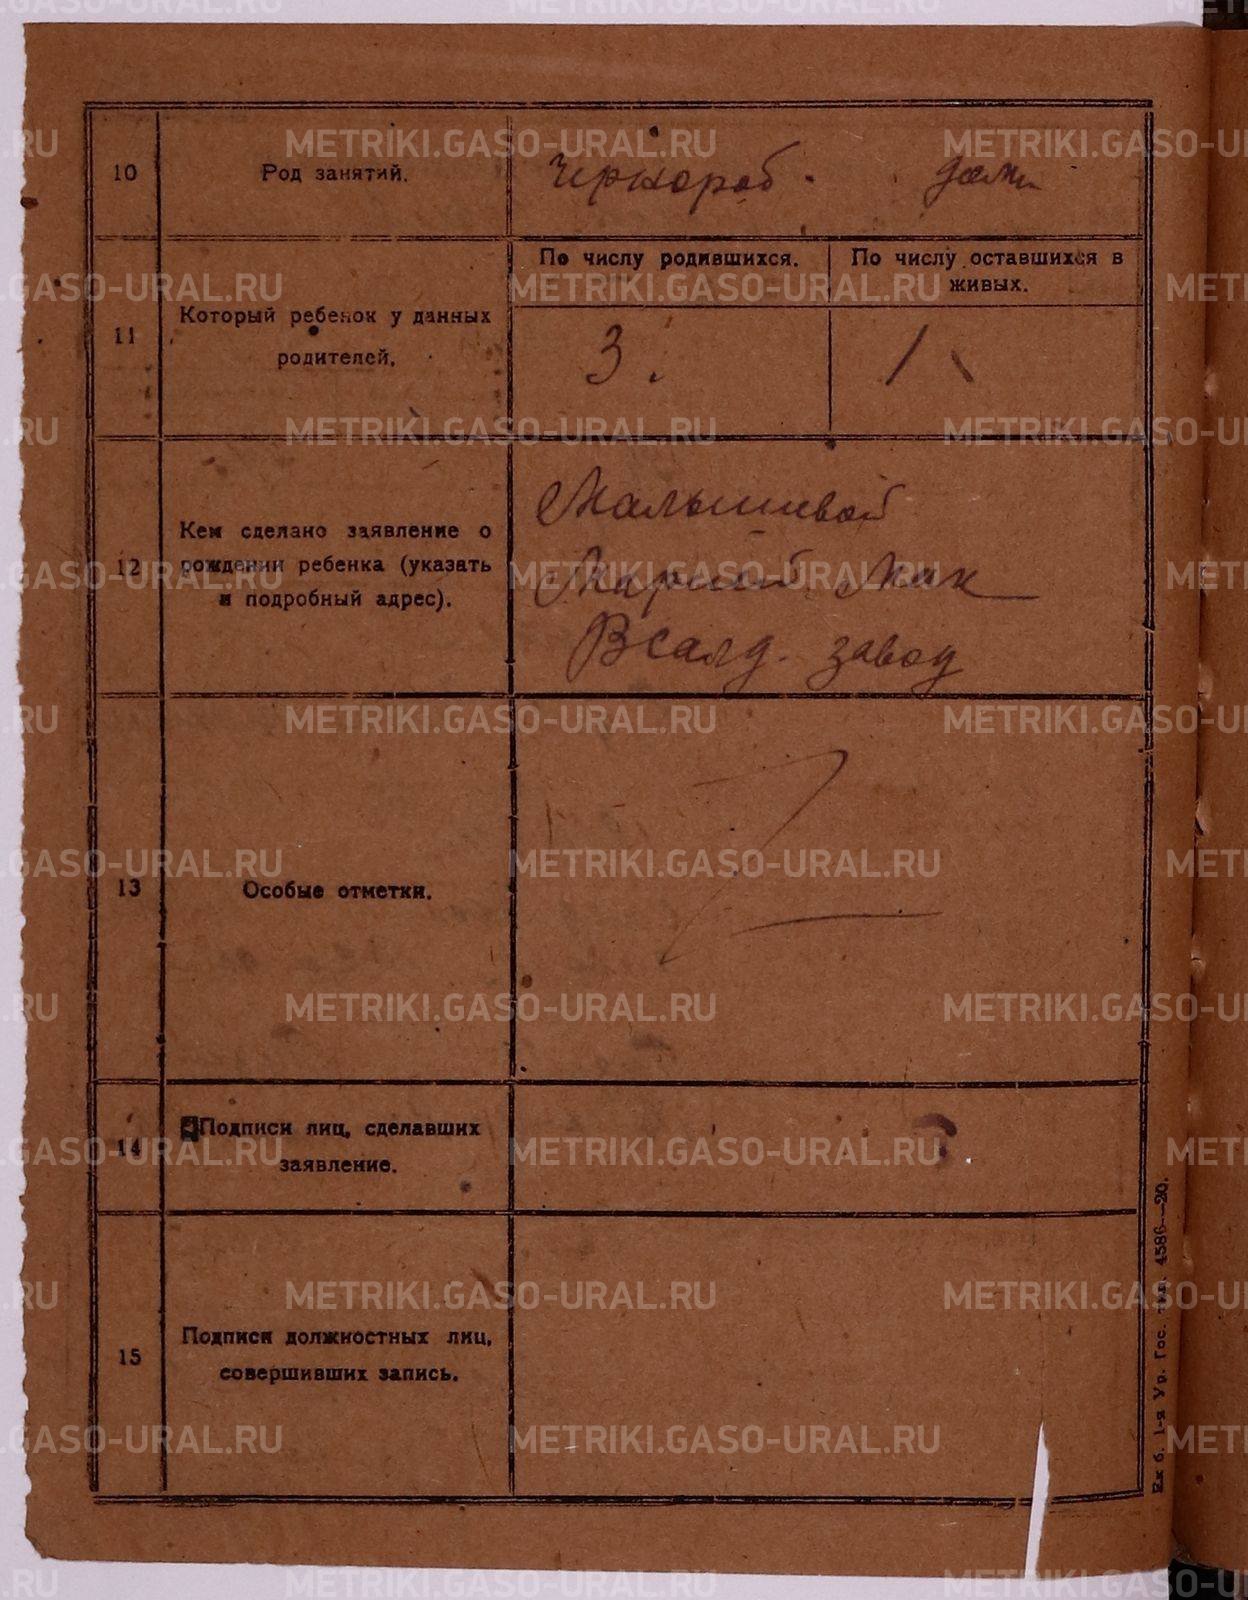 10 Род занятий. Чернораб. дом.
По числу родившихся. По числу оставшихся в живых.
11 Который ребенок у данных родителей. 3. 1
12 Кем сделано заявление о рождении ребенка (указать и подробный адрес).
Малышевой
Марией Мак
ВСалд. завод
13 Особые отметки.
14 Подписи лиц, сделавших заявление.
15 Подписи должностных лиц, совершивших запись.
Ек б. 1-я Ур. Гос. тип. 4586—20.
METRIKI.GASO-URAL.RU